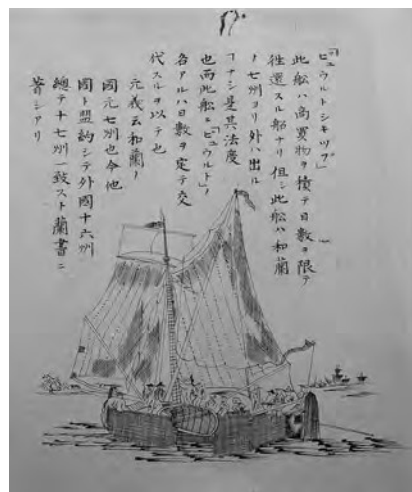 「ビュウルトシキップ」
此舩ハ商買物ヲ積テ日數ヲ限テ
徃還スル舩ナリ但シ此舩ハ和蘭
ノ七州ヨリ外ハ出ル
ヿナシ是其法度
也而此舩ニ「ビュウルト」ノ
名アルハ日數ヲ定テ交
代スルヲ以テ也
元義云和蘭ノ
國元七州也今他
國ト盟約シテ外國十六州
總テ十七州一致スト蘭書ニ
著シアリ